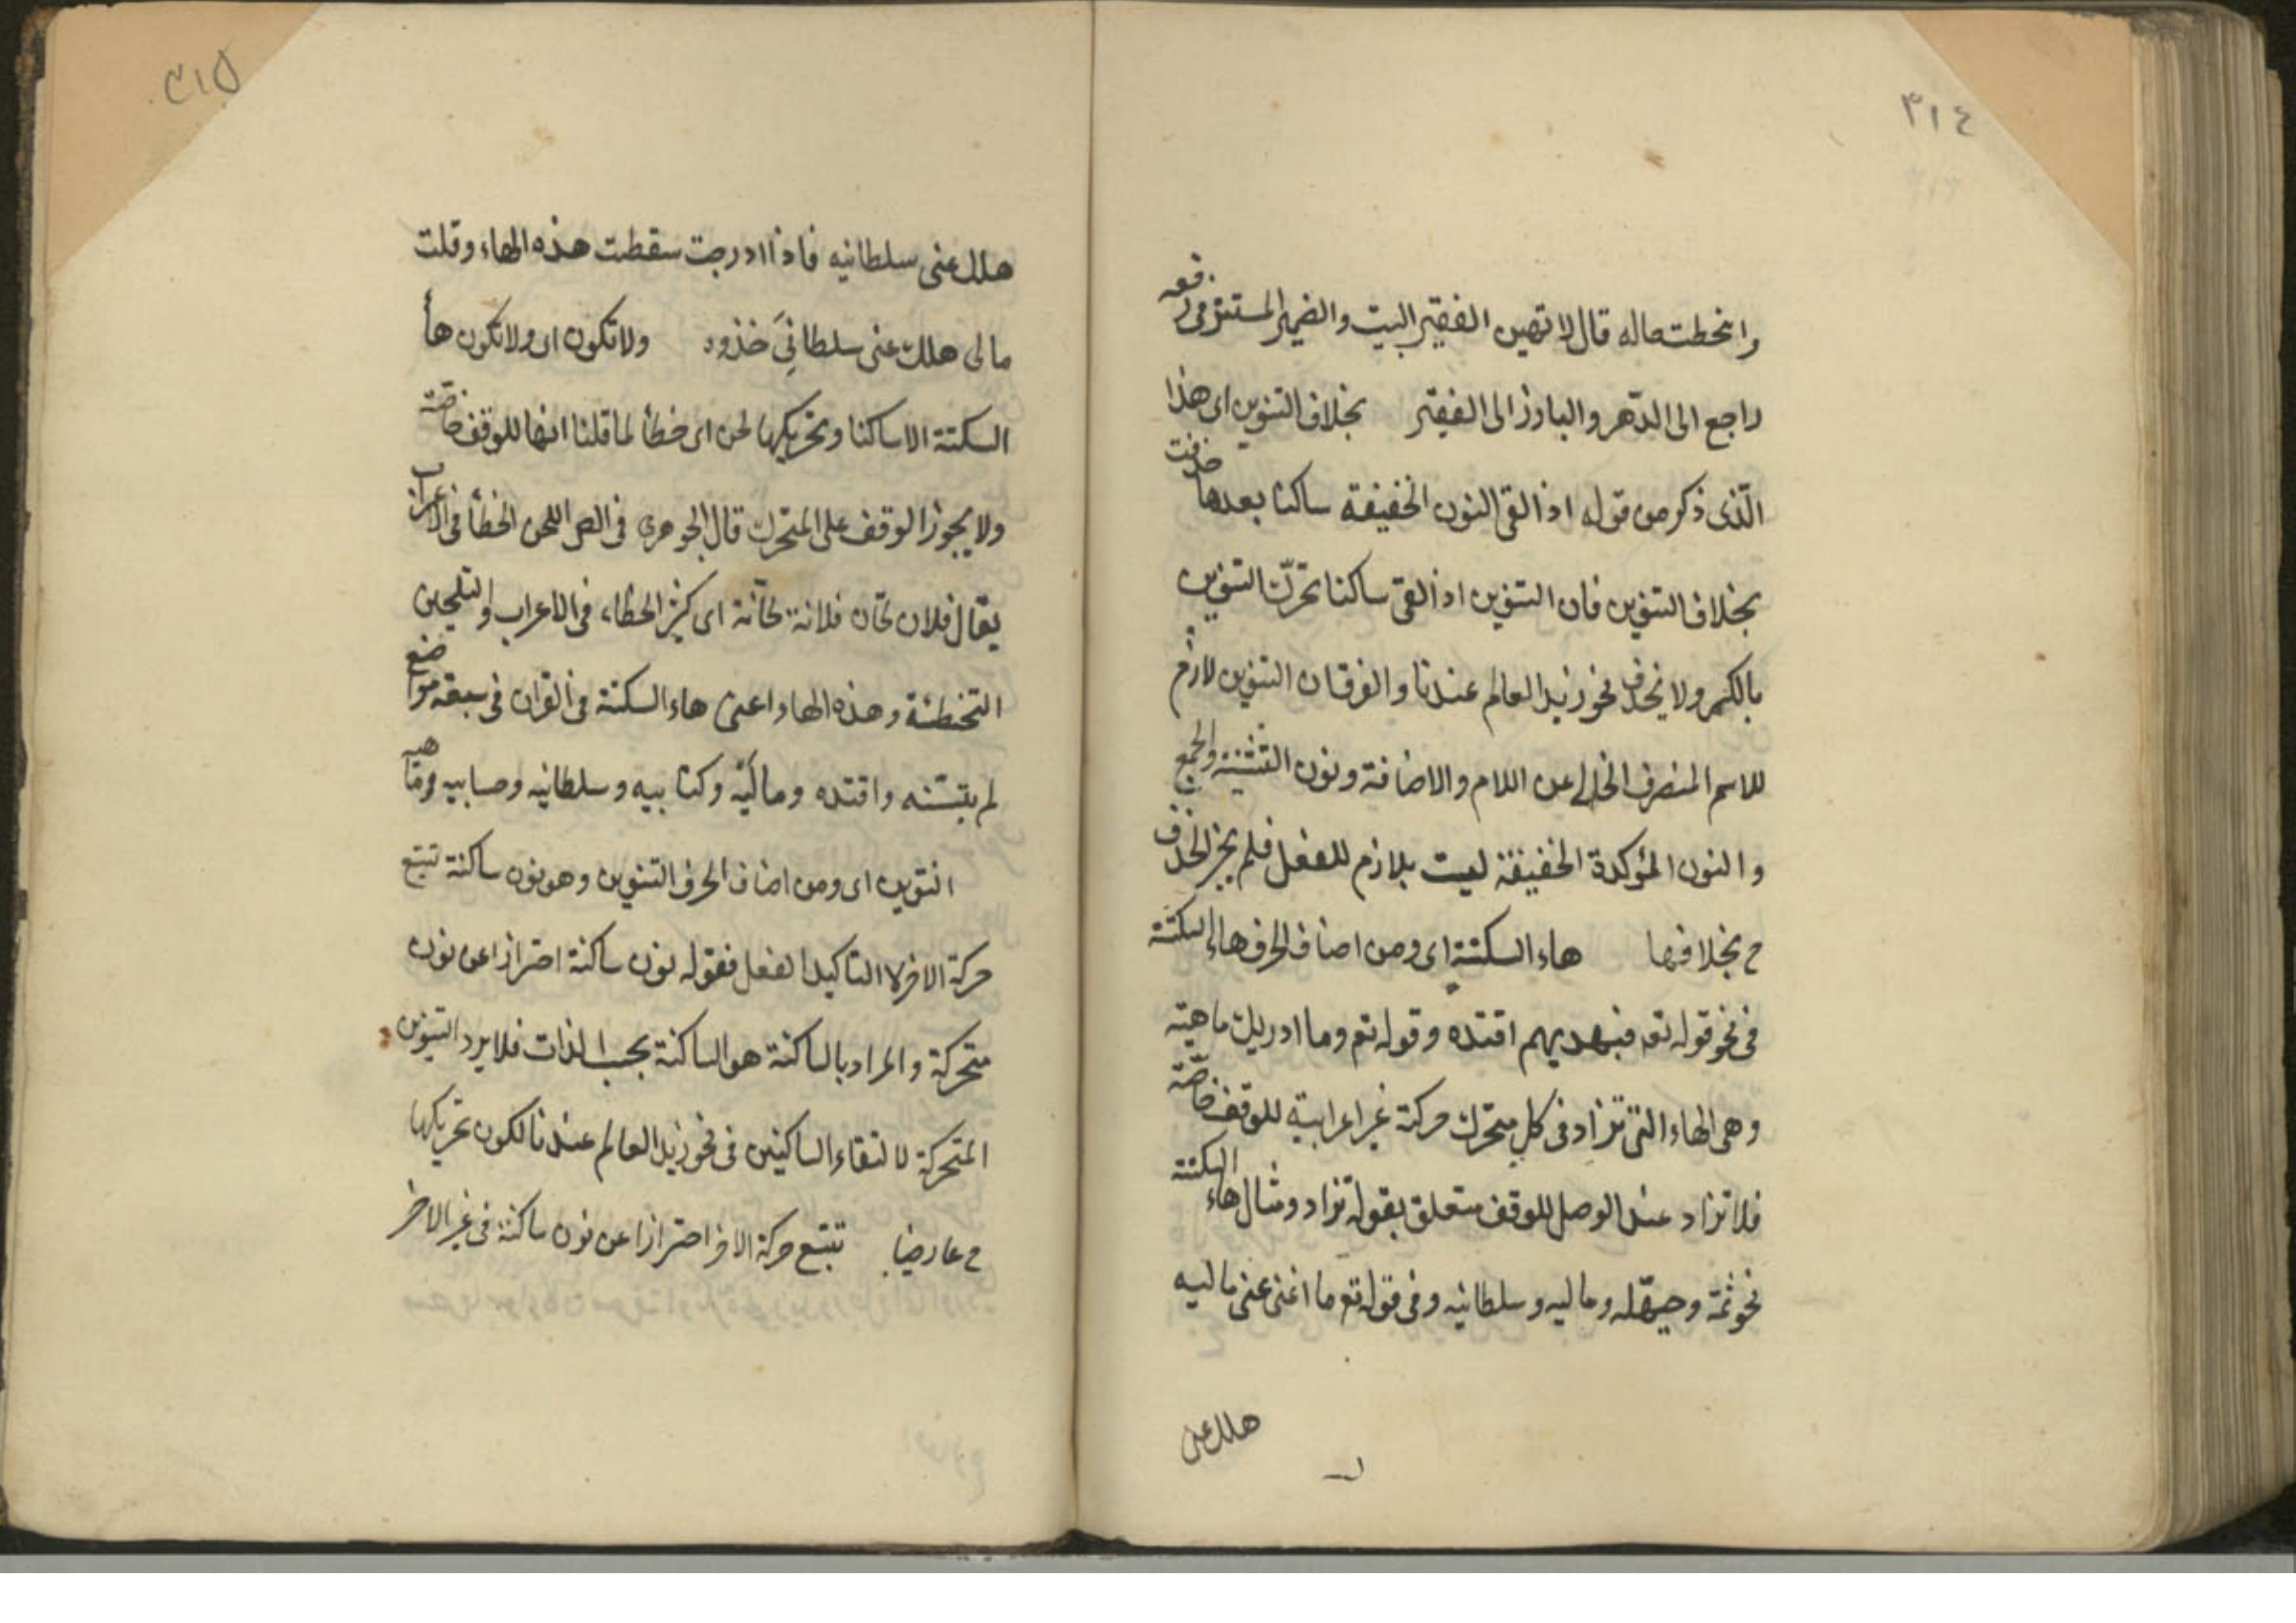 ٣١٤
وانحطت حاله قال لا تهين الفقير البيت والضمير المستتر في رفعه
راجع الى الدّهر والبارز الى الفقير بخلاف التنوين اى هذا
الّذى ذكر من قوله اذا لقى النون الخفيفة ساكنا بعدها حذفت
بخلاف التنوين فان التنوين اذا لقى ساكنا تحرّك التنوين
بالكسر ولا يحذف نحو زيد العالم عندنا والفرق ان التنوين لازم
للاسم المنصرف الخالى عن اللام والاضافة ونون التثنية والجمع
والنون المؤكدة الخفيفة ليست بلازم للفعل فلم يجز الحذف
ح بخلافها هاء السكتة اى ومن اصناف الحرف هاء السكتة
فى نحو قوله تع فبهديهم اقتده وقوله تع وما ادريك ماهيه
وهى الهاء التى تزاد فى كل متحرك حركة غير اعرابية للوقف خاصّة
فلا تزاد عند الوصل للوقف متعلق بقوله تزاد ومثال هاء السكتة
نحو ثمّة وحيّهله وماليه وسلطانيه وفى قوله تع ما اغنى عنى ماليه
هلك عنى
٣١٥
هلك عنى سلطانيه فاذا ادرجت سقطت هذه الهاء وقلت
مالى هلك عنى سلطانِيَ خذوه ولا تكون اى ولا تكون هاأ
السكتة الا ساكنا وتحريكها لحن اى خطأ لما قلنا انها للوقف خاصّة
ولا يجوز الوقف على المتحرك قال الجوهرى فى الص اللحن الخطأ فى الاعراب
يقال فلان لحّان فلانة لحّانة اى كثير الخطاء فى الاعراب والتلحين
التخطئة وهذه الهاء اعنى هاء السكتة فى القران فى سبعة مواضع
لم يتسنه واقتده وماليه وكتابيه وسلطانيه وحسابيه وماهيه
التنوين اى ومن اصناف الحرف التنوين وهو نون ساكنة تتبع
حركة الاخر لا لتاكيد الفعل فقوله نون ساكنة احترازا عن نون
متحركة والمراد بالساكنة هو الساكنة بحسب الذات فلا يرد التنوين
المتحركة لالتقاء الساكنين فى نحو زيد العالم عندنا لكون تحريكها
ح عارضيا تتبع حركة الاخر احترازا عن نون ساكنة فى غير الاخر